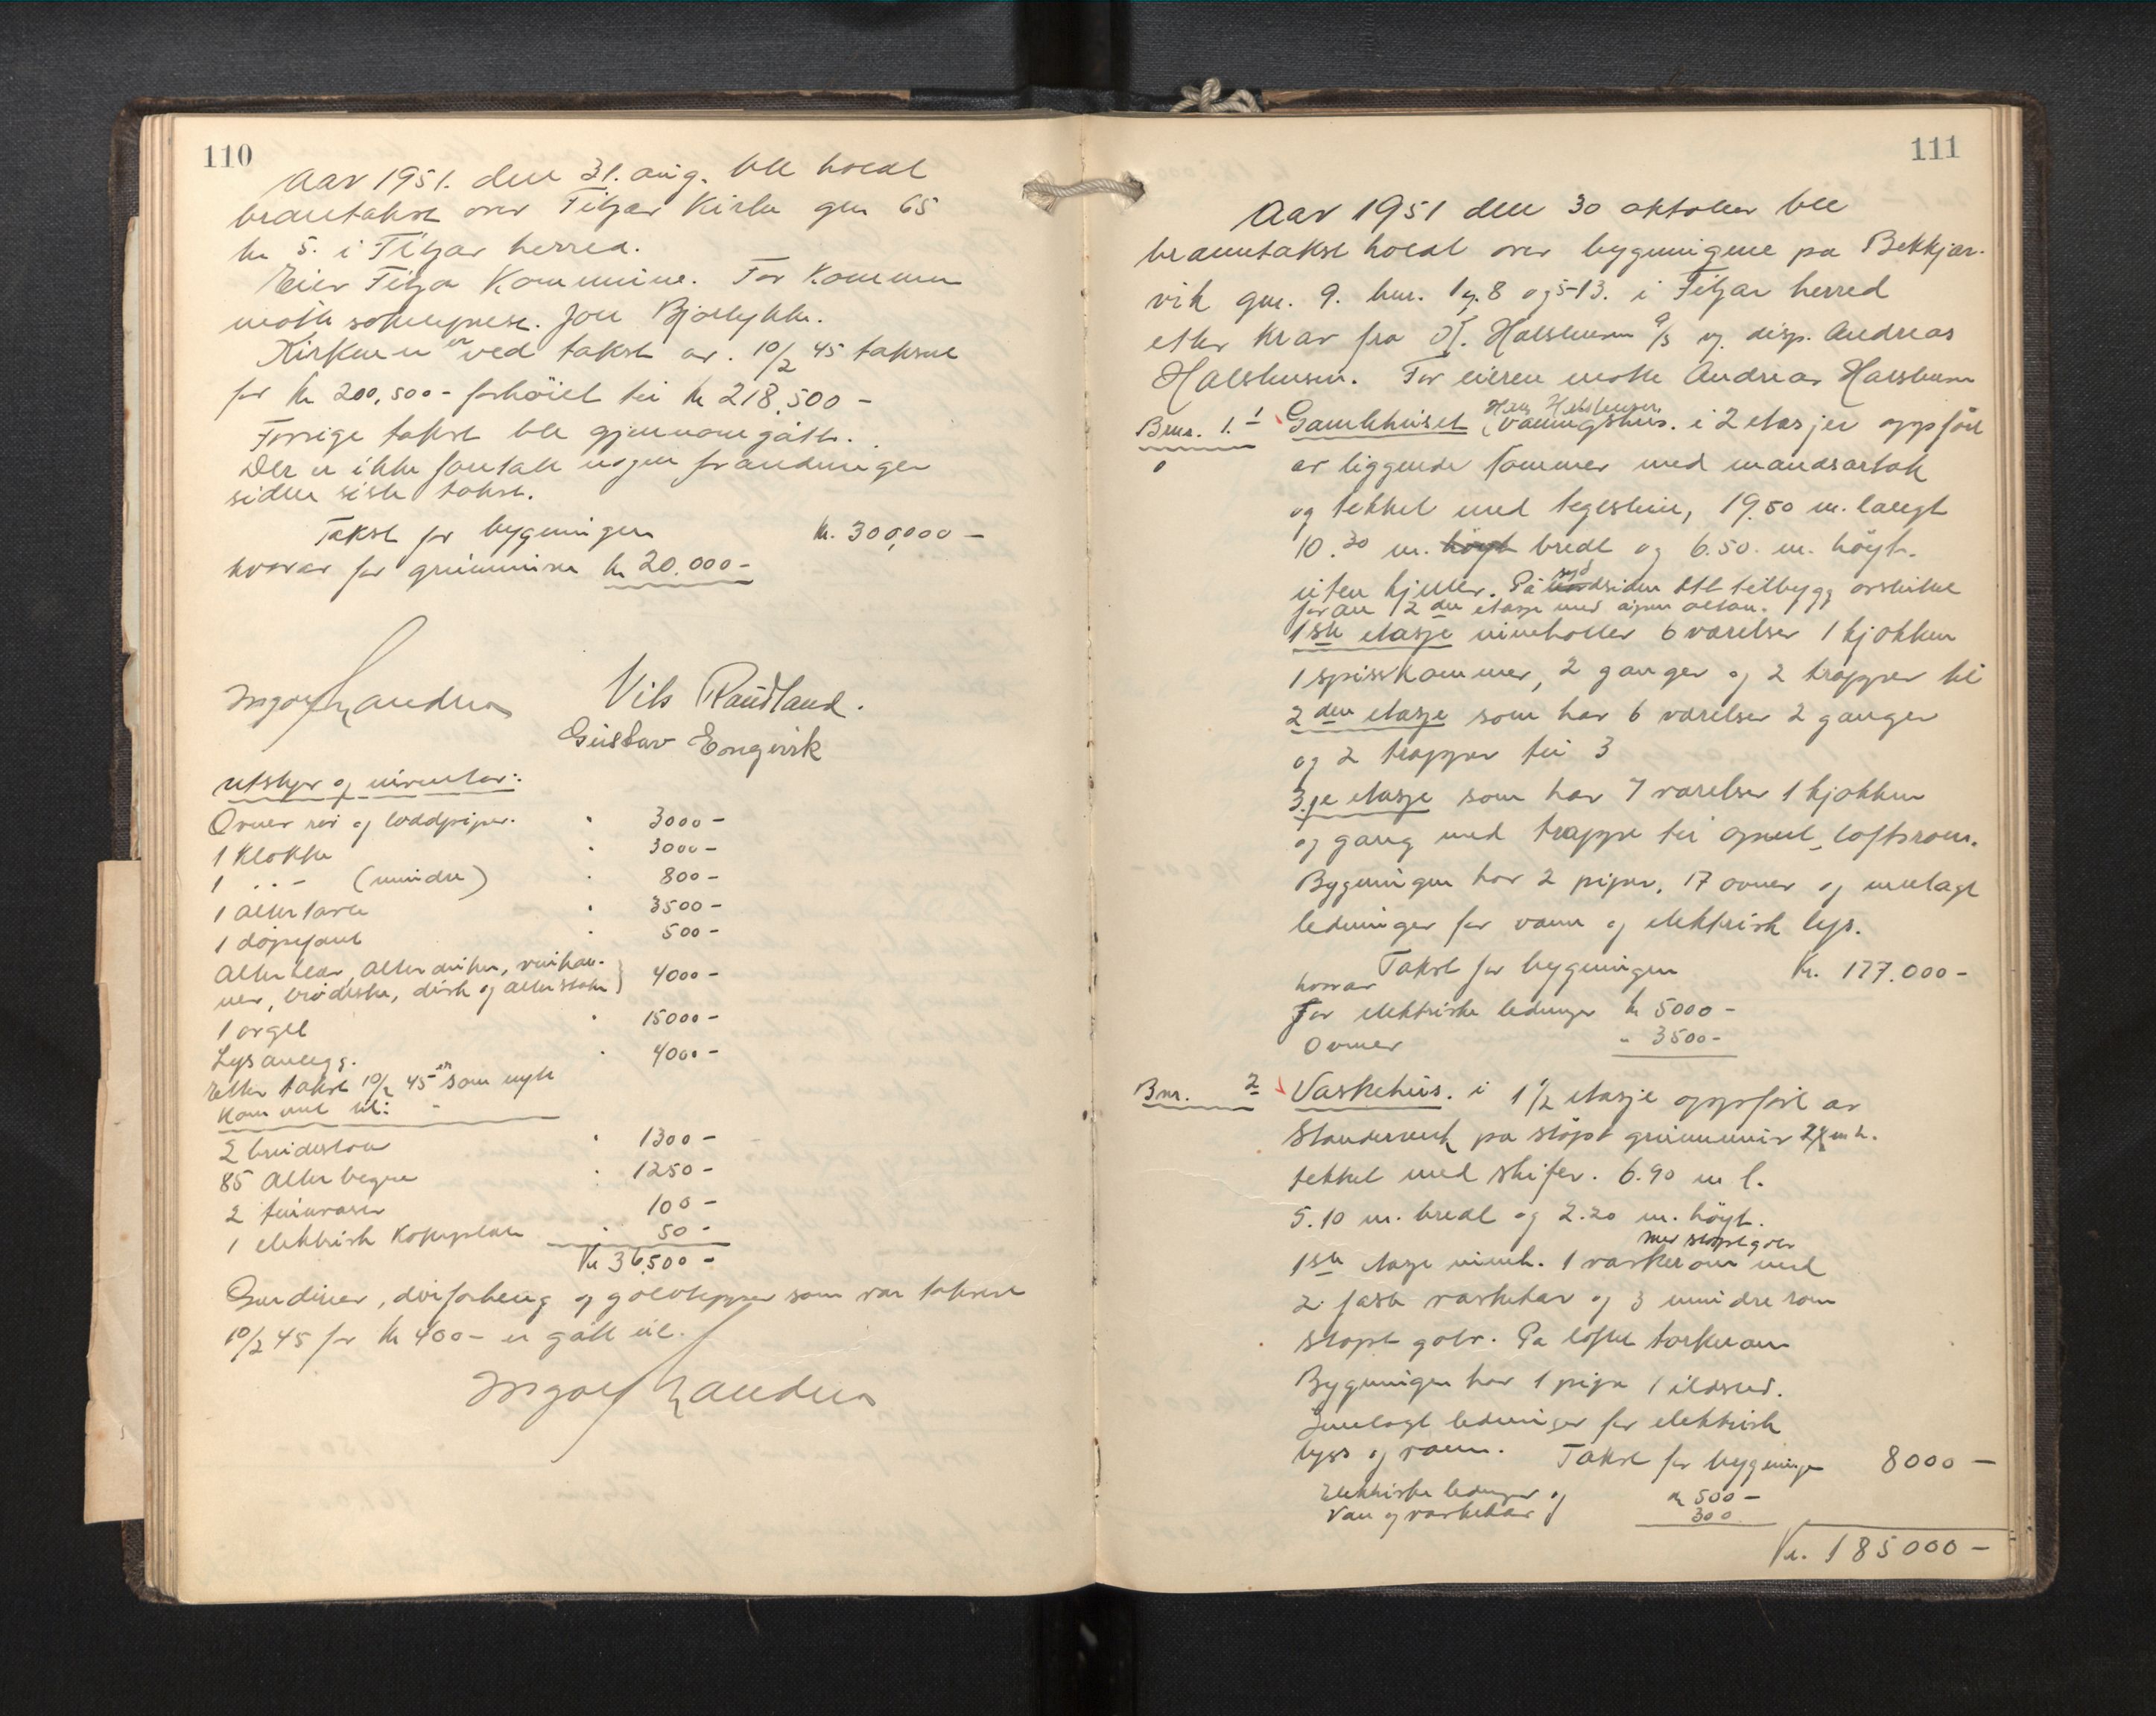 110
Aar 1951. den 31. aug. ble holdt
branntakst over Fitjar Kirke gnr 65
br 5. i Fitjar herred.
Eier Fitja Kommune. For Kommun
møtte soknepresr. Jon Bjørlykke.
Kirken er ved takst av. 10/2 45 taksert
for kr 200,500- forhöiet til kr 218,500 -
Forrige takst ble gjennomgått.
Der er ikke foretatt nogen forandringer
siden siste takst.
Takst for bygningen kr. 300,000 -
hvorav for grunnmuren kr 20.000-
Ingolf Landro Nils Raudland.
Gustav Engevik
Utstyr og inventar:
Ovner rör og loddpiper. " 3000 -
1 Klokke " 3000 -
1 " - (mindre) " 800 -
1 altertavle " 3500 -
1 døpefont " 500 -
Alterklær, alterduker, vinkan-
ner, brödeske, disk og alterstake } 4000 -
1 orgel " 15000 -
Lysanlegg. " 4000 -
Etter takst 10/2 45 er som nytt
kommet til:
2 brudestoler " 1300 -
85 Alterbegre " 1250 -
2 tinnvaser 100 -
1 elektrisk kokeplate " 50 -
Kr 36,500 -
Gardiner, dörforheng og golvtepper som var taksert
10/2 45 for kr 400- er gått ut.
Ingolf Landro
111
Aar 1951 den 30 oktober ble
branntakst holdt over bygningene på Bekkjar-
vik gnr. 9. bnr. 1 og 8 og 5-13. i Fitjar herred
etter krav fra O.T. Halshusen A/S og disp. Andreas
Halshusen. For eieren møtte Andreas Halshusen
Bnr. 1. 1 Gamlehuset (Våningshus. i 2 etasjer oppfört
av liggende tömmer med mansartak
og tekket med teglstein, 19,50 m. langt
10.30 m. höyt bredt og 6.50. m. höyt.
uten kjeller. På nordsiden syd ett tilbygg avsluttet
foran 2den etasje med åpen altan.
1ste etasje inneholder 6 værelser 1 kjøkken
1 spisskammer, 2 ganger og 2 trapper til
2den etasje som har 6 værelser 2 ganger
og 2 trapper til 3
3.je etasje som har 7 værelser 1 kjøkken
og gang med trappe til åpent loftsrom.
Bygningen har 2 piper, 17 ovner og innlagt
ledninger for vann og elektrisk lys.
Takst for bygningen Kr. 177.000-
hvorav
For elektriske ledninger kr 5000 -
Ovner " 3500-
Bnr. 2 Vaskehus. i 1 1/2 etasje oppfört av
Standerverk på stöpt grunnmur 2 m h.
tekket med skifer. 6.90 m l.
5.10 m. bredt og 2.20 m. höyt.
med stöpt golv
1ste etasje inneh. 1 vaskerom med
2 faste vaskekar og 3 mindre rom
stöpt golv. På loftet torkerom
Bygningen har 1 pipe 1 ildsted.
Innlagt ledninger for elektrisk
lyss og vann. Takst for bygningen 8000 -
Elektriske ledninger og kr 500 -
Vann og vaskekar 300
Kr. 185000 -